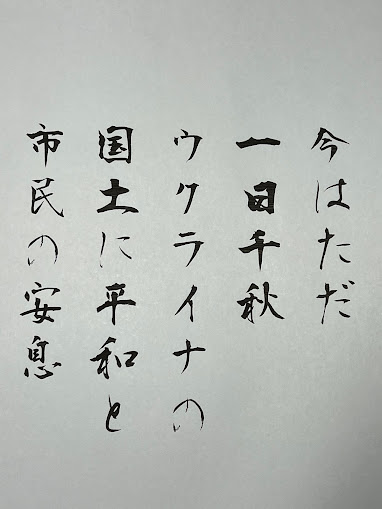 今はただ
一日千秋
ウクライナの
国土に平和と
市民の安息